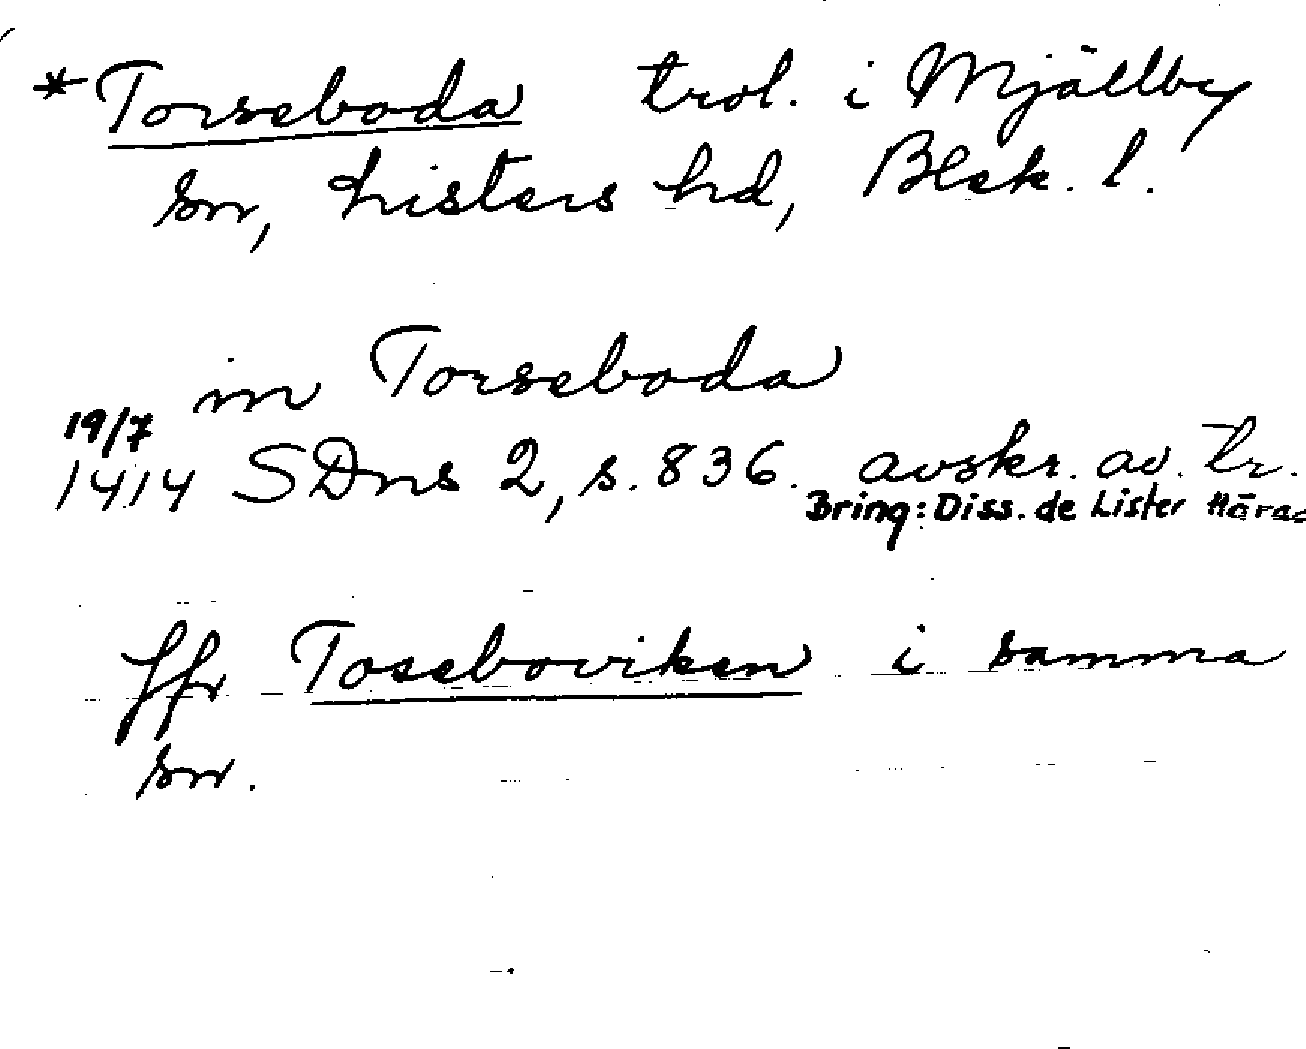 *Torseboda trol. i Mjällby
sn, Listers hd, Blek. l.
in Torseboda
19/7
1414 SDns 2, s. 836. avskr. av. tr.
Bring: Diss. de Lister Härad
Jfr Toseboviken i samma
sn.